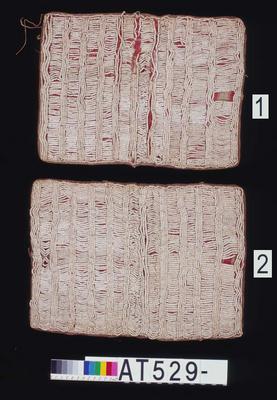 1
2
AT529-